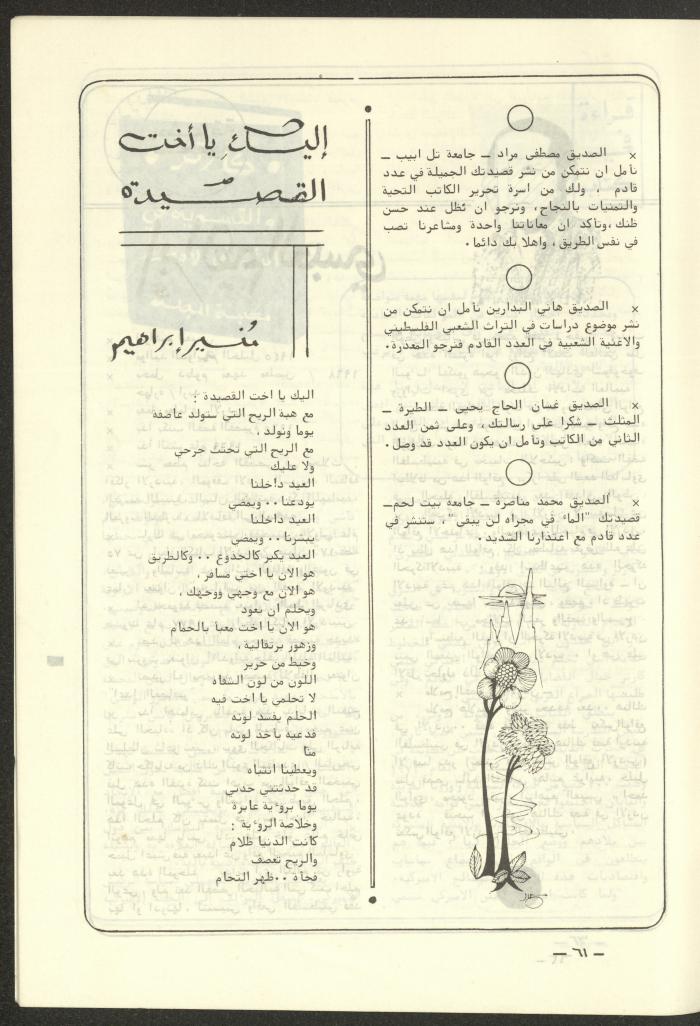 × الصديق مصطفى مراد ــ جامعة تل ابيب ــ
نأمل ان نتمكن من نشر قصيدتك الجميلة في عدد
قادم ، ولك من اسرة تحرير الكاتب التحية
والتمنيات بالنجاح، ونرجو ان نظل عند حسن
ظنك ،ونأكد ان معاناتنا واحدة ومشاعرنا تصب
في نفس الطريق ، واهلا بك دائما .
× الصديق هاني البدارين نأمل ان نتمكن من
نشر موضوع دراسات في التراث الشعبي الفلسطيني
والاغنية الشعبية في العدد القادم فنرجو المعذرة.
× الصديق غسان الحاج يحيى ــ الطيرة ــ
المثلث ــ شكرا على رسالتك ، وعلى ثمن العدد
الثاني من الكاتب ونأمل ان يكون العدد قد وصل.
× الصديق محمد مناصرة ــ جامعة بيت لحم ــ
قصيدتك "الماء في مجراه لن يبقى" ، ستنشر في
عدد قادم مع اعتذارنا الشديد .
إليك يا أخت
القصيدة
منير إبراهيم
اليك يا اخت القصيدة :
مع هبة الريح التي ستولد عاصفة
يوما ونولد ،
مع الريح التي تحتت جرحي
ولا عليك
العيد داخلنا
يودعنا .. ويمضي
العيد داخلنا
يبشرنا .. ويمضي
العيد يكبر كالجذوع .. وكالطريق
هو الان يا اختي مسافر ،
هو الان مع وجهي ووجهك ،
ويحلم ان يعود
هو الان يا اخت معبأ بالحمام
وزهور برتقالية ،
وخيط من حرير
اللون من لون الشفاه
لا تحلمي يا اخت فيه
الحلم يفسد لونه
فدعيه يأخذ لونه
منا
ويعطينا انتباه
قد حدثتني جدتي
يوما برؤية عابرة
وخلاصة الرؤية :
كانت الدنيا ظلام
والريح تعصف
فجأة .. ظهر التحام
ــ ٦١ ــ